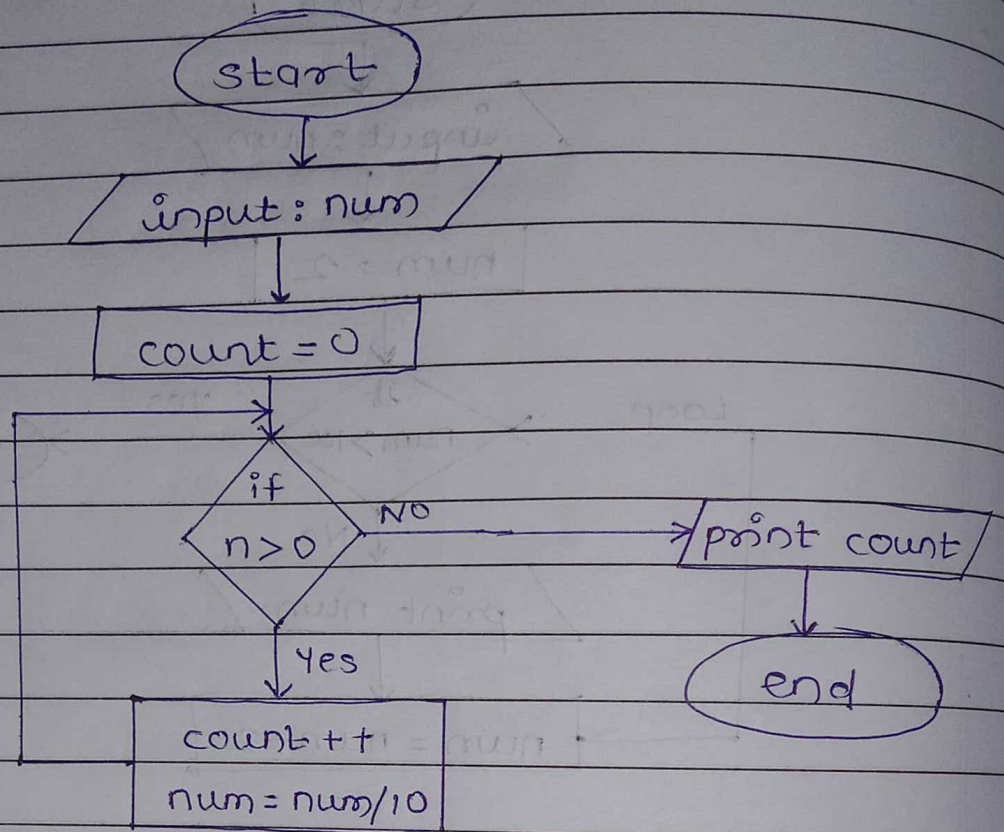 start
input : num
count = 0
if
n>0
NO
print count
end
Yes
count ++
num = num/10